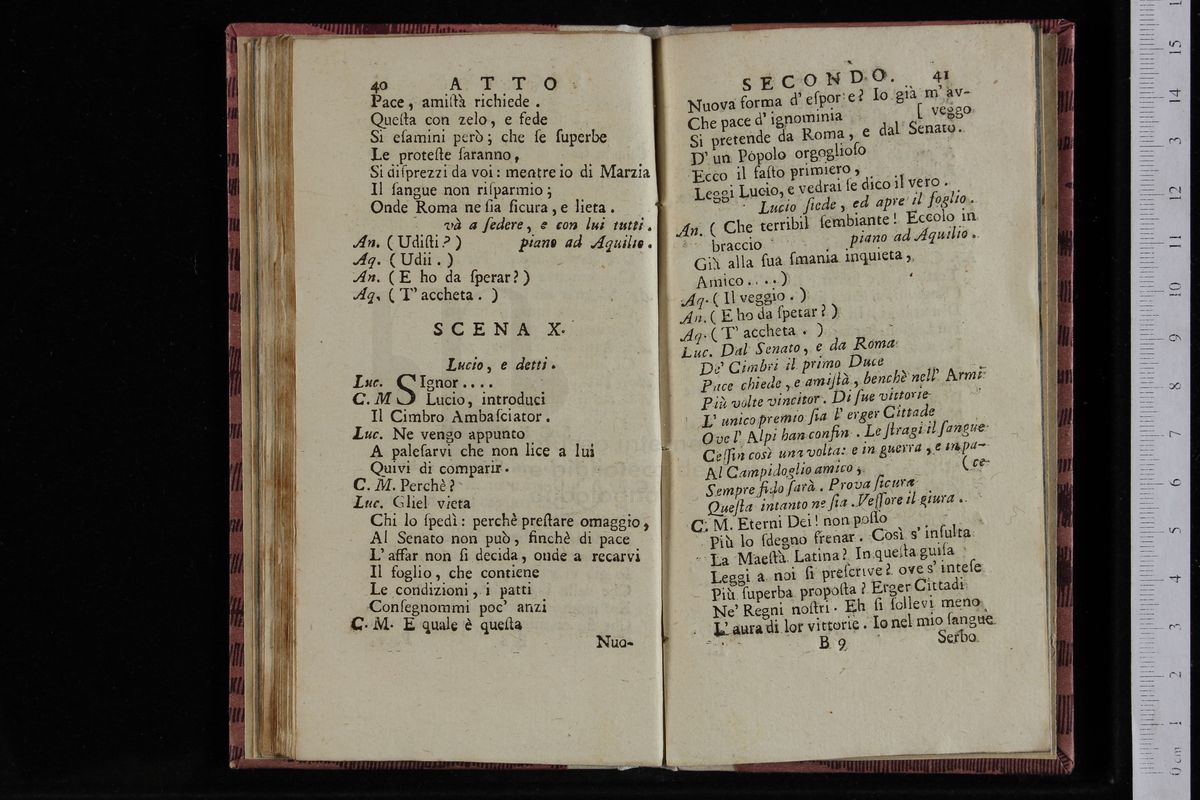 40 ATTO
Pace, amiſtà richiede.
Queſta con zelo, e fede
Si eſamini però; che ſe ſuperbe
Le proteſte ſaranno,
Si diſprezzi da voi: mentre io di Marzia
Il ſangue non riſparmio;
Onde Roma ne ſia ſicura, e lieta.
và a ſedere, e con lui tutti.
An. (Udiſti?) piano ad Aquilio.
Aq. (Udii.)
An. (E ho da ſperar?)
Aq. (T' accheta.)
SCENA X.
Lucio, e detti.
Luc. SIgnor....
C. M. Lucio, introduci
Il Cimbro Ambaſciator.
Luc. Ne vengo appunto
A paleſarvi che non lice a lui
Quivi di comparir.
C. M. Perchè?
Luc. Gliel vieta
Chi lo ſpedì: perchè preſtare omaggio,
Al Senato non può, finchè di pace
L' affar non ſi decida, onde a recarvi
Il foglio, che contiene
Le condizioni, i patti
Conſegnommi poc' anzi
C. M. E quale è queſta
Nuo-
SECONDO. 41
Nuova forma d' eſporre? Io già m' av-
Che pace d' ignominia [veggo
Si pretende da Roma, e dal Senato.
D' un Popolo orgoglioſo
Ecco il faſto primiero,
Leggi Lucio, e vedrai ſe dico il vero.
Lucio ſiede, ed apre il foglio.
An. (Che terribil ſembiante! Eccolo in
braccio piano ad Aquilio.
Già alla ſua ſmania inquieta,
Amico....)
Aq. (Il veggio.)
An. (E ho da ſpetar?)
Aq. (T' accheta.)
Luc. Dal Senato, e da Roma
De' Cimbri il primo Duce
Pace chiede, e amiſtà, benchè nell' Armi
Più volte vincitor. Di ſue vittorie
L' unico premio ſia l' erger Cittade
Ove l' Alpi han confin. Le ſtragi il ſangue
Ceſſin così una volta: e in guerra, e in pa-
Al Campidoglio amico, (ce
Sempre fido ſarà. Prova ſicura
Queſta intanto ne ſia. Veſſore il giura.
C. M. Eterni Dei! non poſſo
Più lo ſdegno frenar. Così s' inſulta
La Maeſtà Latina? In queſta guiſa
Leggi a noi ſi preſcrive? ove s' inteſe
Più ſuperba propoſta? Erger Cittadi
Ne' Regni noſtri. Eh ſi ſollevi meno
L' aura di lor vittorie. Io nel mio ſangue
B 9 Serbo